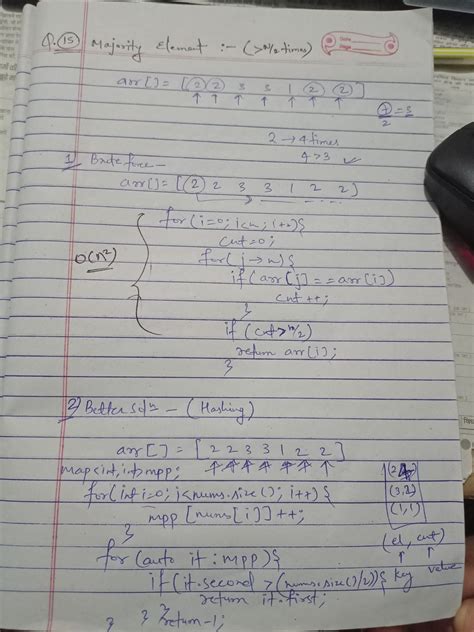 Q.15 Majority Element :- (>n/2 times)
Date
Page
arr[] = [2 2 3 3 1 2 2]
7/2 = 3
2 → 4 times
4 > 3 ✓
1) Brute force -
arr[] = [2 2 3 3 1 2 2]
for(i=0; i<n; i++){
cnt=0;
O(n²)
for(j→n){
if(arr[j]==arr[i])
cnt++;
}
if(cnt>n/2)
return arr[i];
}
2) Better Soln - (Hashing)
arr[] = [2 2 3 3 1 2 2]
map<int,int>mpp;
(2,4)
for(int i=0; i<nums.size(); i++){
(3,2)
mpp[nums[i]]++;
(1,1)
}
(el, cnt)
for(auto it:mpp){
key value
if(it.second>(nums.size()/2)){
return it.first;
} } }
return -1;